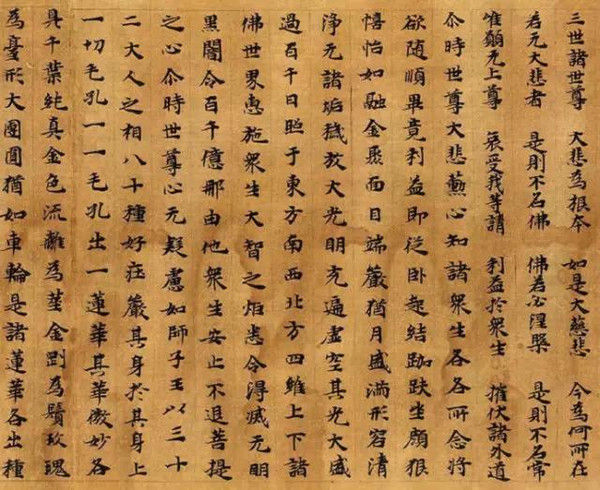 三世諸世尊 大悲為根本 如是大慈悲 今為何所在
若无大悲者 是則不名佛 佛若必涅槃 是則不名常
惟願无上尊 哀受我等請 利益於衆生 摧伏諸外道
尒時世尊大悲薰心知諸衆生各各所念將
欲随順畢竟利益即從卧起結跏趺坐顔貌
憘怡如融金聚面目端嚴猶月盛滿形容清
淨无諸垢穢放大光明充遍虛空其光大盛
過百千日照于東方南西北方四維上下諸
佛世界惠施衆生大智之炬悉令得滅无明
黒闇令百千億那由他衆生安止不退菩提
之心尒時世尊心无疑慮如師子王以三十
二大人之相八十種好莊嚴其身於其身上
一切毛孔一一毛孔出一蓮華其華微妙各
具千葉純真金色流離為莖金剛為鬚玫瑰
為臺形大團圓猶如車輪是諸蓮華各出種